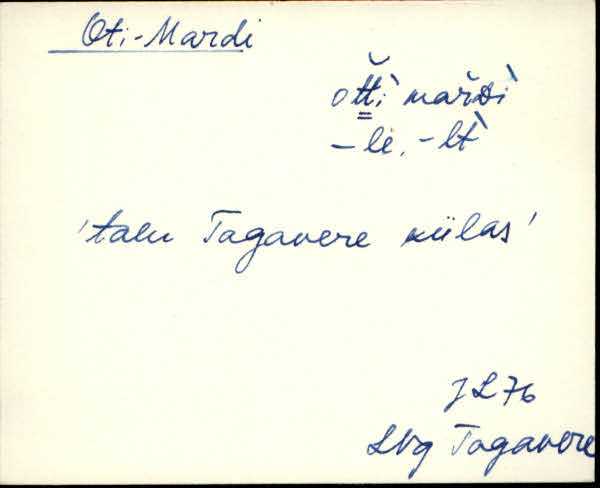 Oti-Mardi
ot̆t̀i mař̀di
-le, -lt
'talu Tagavere külas'
JL76
LNg Tagavere